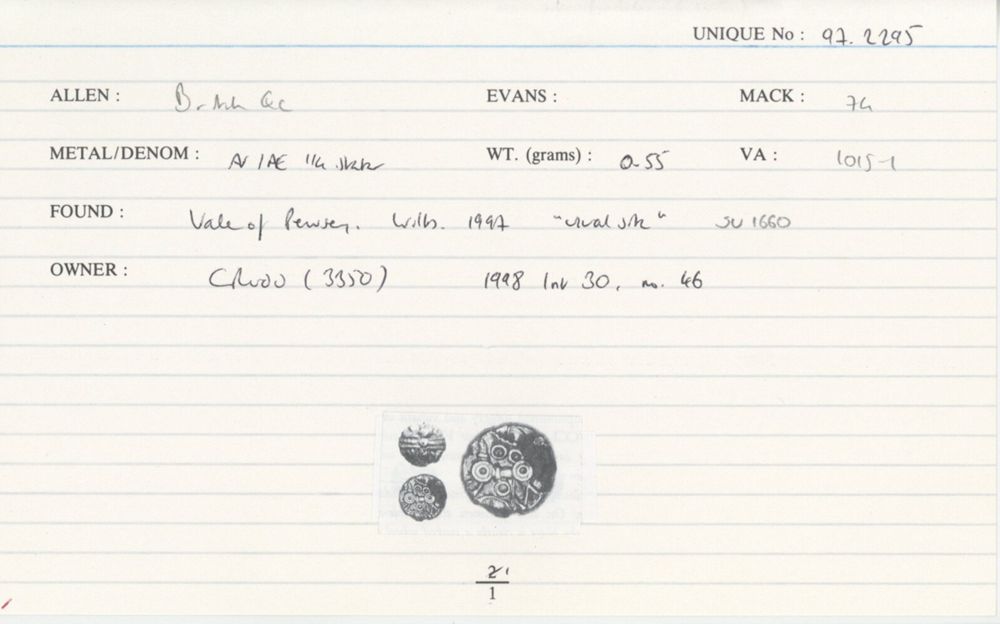 UNIQUE No : 97. 2295
ALLEN : British Qc EVANS : MACK : 74
METAL/DENOM : AV/AE 1/4 stater WT. (grams) : 0.55 VA : 1015-1
FOUND : Vale of Pewsey. Wilts. 1997 SU 1660
OWNER : (3350) 1998 30, no. 46
1